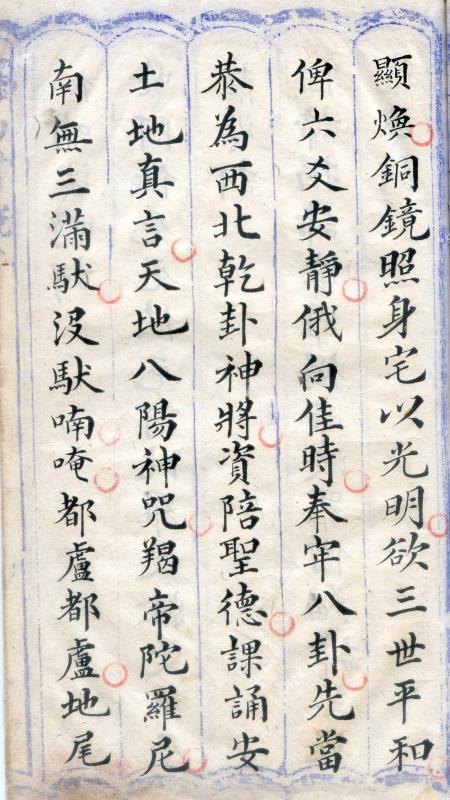 顯煥銅鏡照身宅以光明欲三世平和
俾六爻安靜俄向佳時奉牢八卦先當
恭為西北乾卦神將資陪聖德課誦安
土地真言天地八陽神咒羯帝陀羅尼
南無三滿馱沒馱喃唵都盧都盧地尾